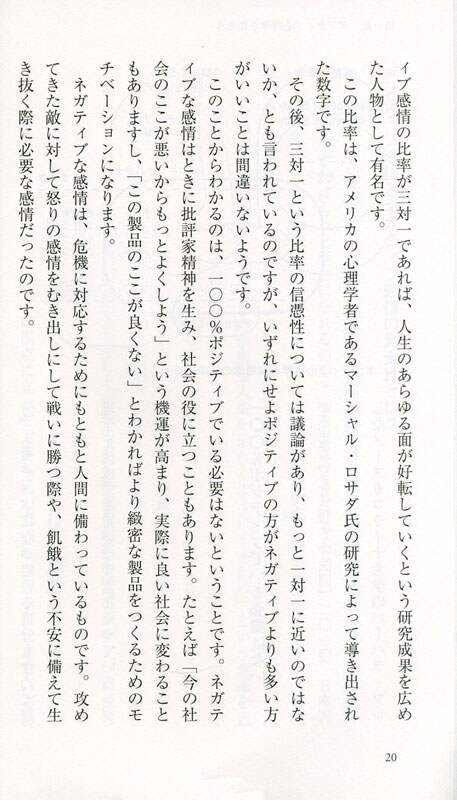 ィブ感情の比率が三対一であれば、人生のあらゆる面が好転していくという研究成果を広め
た人物として有名です。
この比率は、アメリカの心理学者であるマーシャル・ロサダ氏の研究によって導き出され
た数字です。
その後、三対一という比率の信憑性については議論があり、もっと一対一に近いのではな
いか、とも言われているのですが、いずれにせよポジティブの方がネガティブよりも多い方
がいいことは間違いないようです。
このことからわかるのは、一〇〇％ポジティブでいる必要はないということです。ネガテ
ィブな感情はときに批評家精神を生み、社会の役に立つこともあります。たとえば「今の社
会のここが悪いからもっとよくしよう」という機運が高まり、実際に良い社会に変わること
もありますし、「この製品のここが良くない」とわかればより緻密な製品をつくるためのモ
チベーションになります。
ネガティブな感情は、危機に対応するためにもともと人間に備わっているものです。攻め
てきた敵に対して怒りの感情をむき出しにして戦いに勝つ際や、飢餓という不安に備えて生
き抜く際に必要な感情だったのです。
20